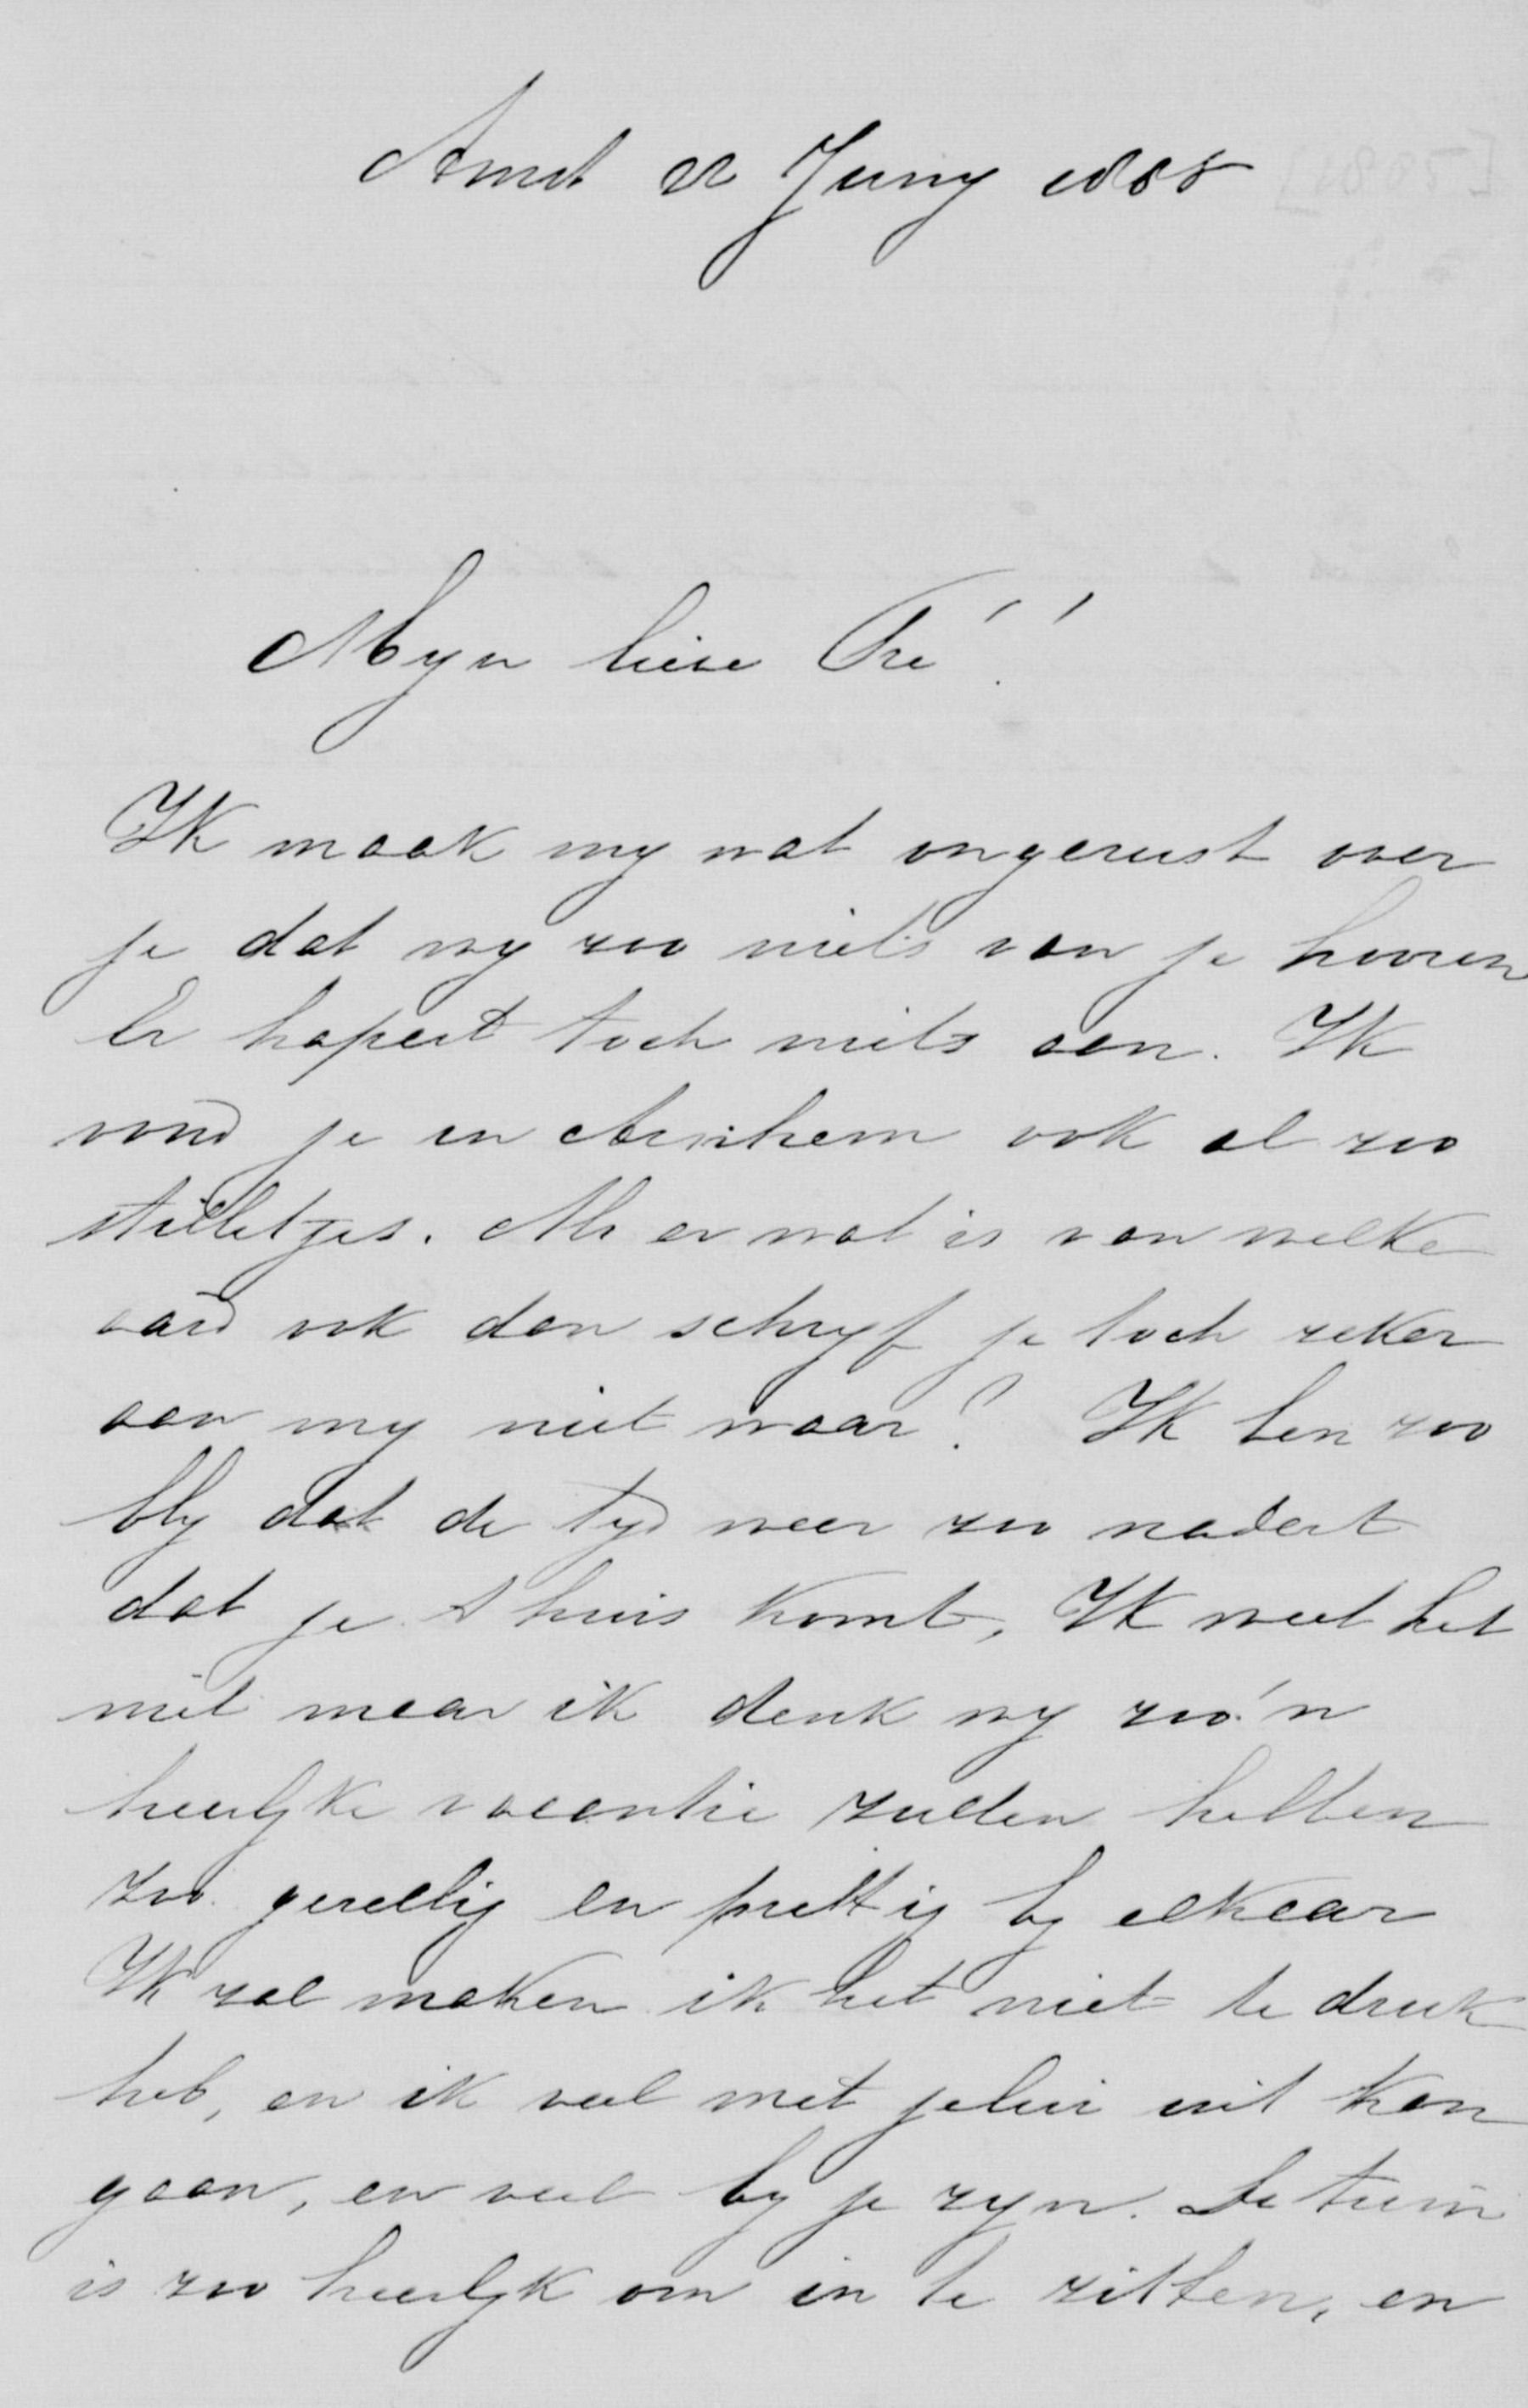 Amst 22 Juny 1888
Myn lieve Fré!
Ik maak my wat ongerust over
je dat wy zoo niets van je hooren
Er hapert toch niets aan. Ik
vond je in Arnhem ook al zoo
stilletjes. Als er wat is van welke
aard ook dan schryf je toch zeker
aan my niet waar? Ik ben zoo
bly dat de tyd weer zoo nadert
dat je thuis komt, Ik weet het
niet maar ik denk wy zoo'n
heerlyke vacantie zullen hebben
zoo gezellig en prettig by elkaar
Ik zal maken ik het niet te druk
heb, en ik veel met jelui uit kan
gaan, en veel by je zyn. De tuin
is zoo heerlyk om in te zitten, en